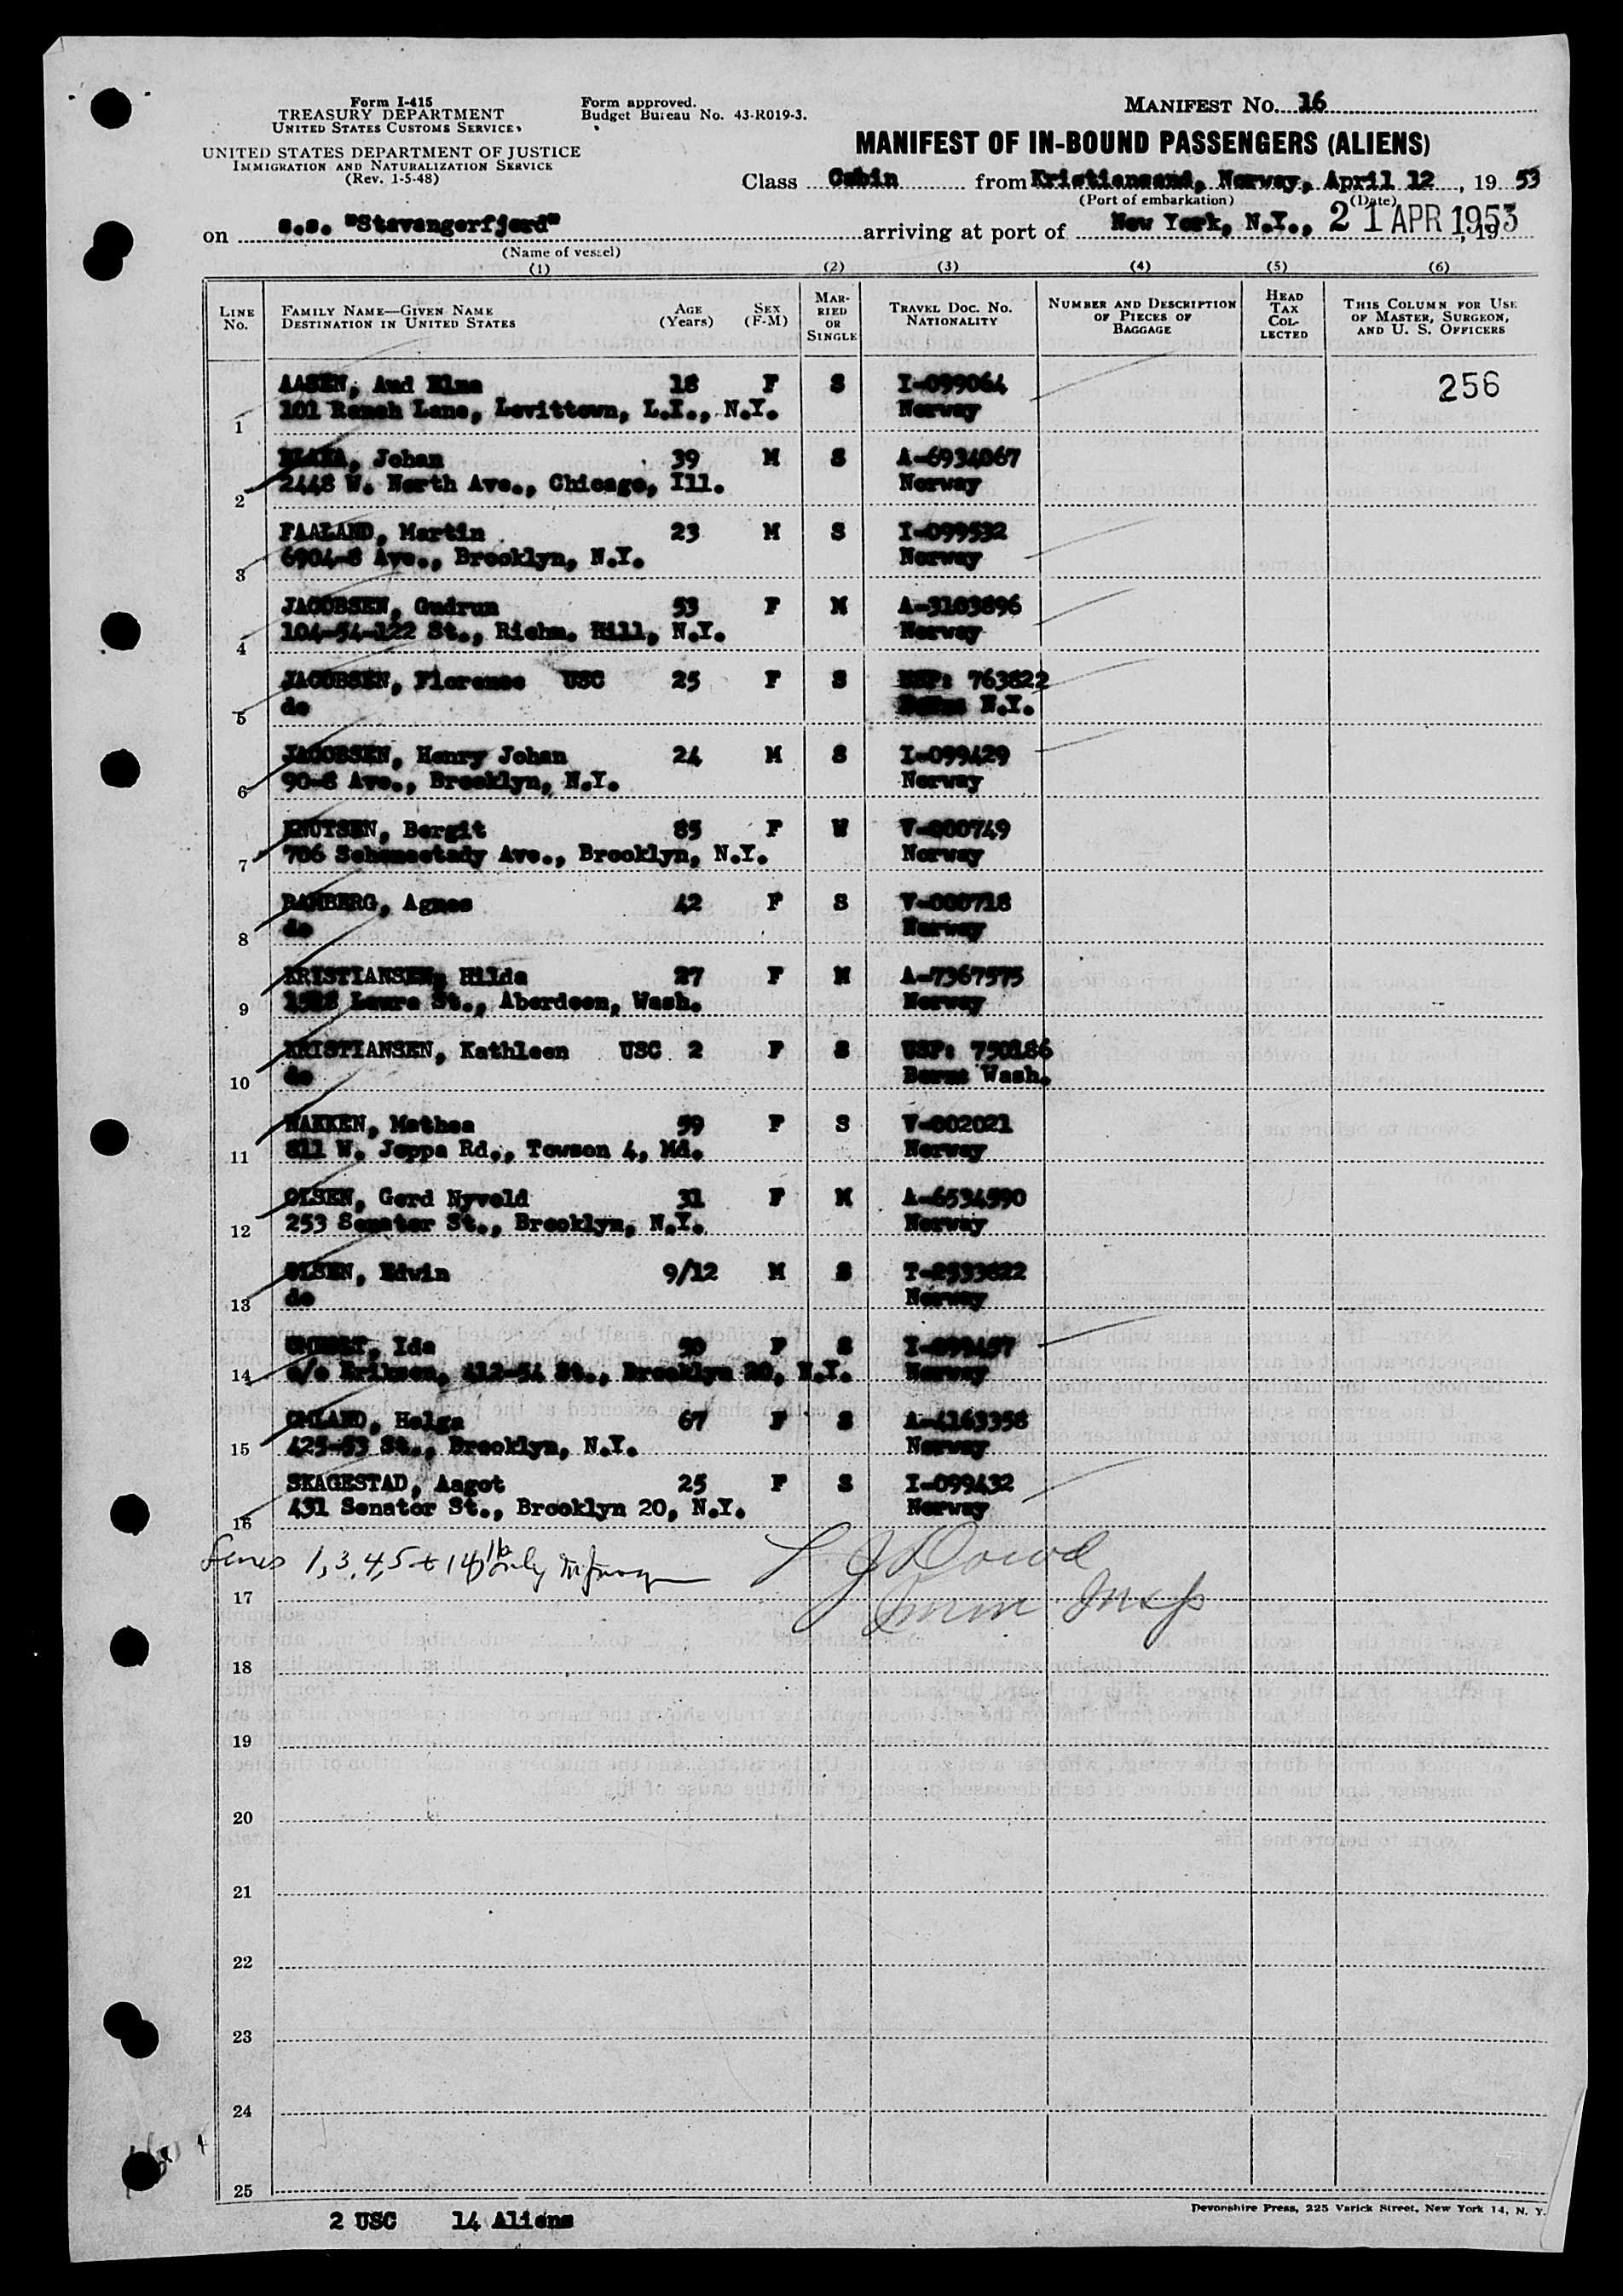 Form I-415
TREASURY DEPARTMENT
UNITED STATES CUSTOMS SERVICE
UNITED STATES DEPARTMENT OF JUSTICE
IMMIGRATION AND NATURALIZATION SERVICE
(Rev. 1-5-48)
Form approved.
Budget Bureau No. 43-R019-3.
MANIFEST NO. 16
MANIFEST OF IN-BOUND PASSENGERS (ALIENS)
Class Cabin from Kristiansand, Norway, April 12, 19 53
(Port of embarkation) (Date)
on s.s. "Stavangerfjord" arriving at port of New York, N.Y., 21 APR 1953, 19
(Name of vessel)
(1) (2) (3) (4) (5) (6)
LINE NO.
FAMILY NAME—GIVEN NAME
DESTINATION IN UNITED STATES
AGE (Years)
SEX (F-M)
MARRIED OR SINGLE
TRAVEL DOC. NO. NATIONALITY
NUMBER AND DESCRIPTION OF PIECES OF BAGGAGE
HEAD TAX COLLECTED
THIS COLUMN FOR USE OF MASTER, SURGEON, AND U. S. OFFICERS
AASEN, Aud Elna 18 F S I-099064 256
1 101 Ranch Lane, Levittown, L.I., N.Y. Norway
Johan 39 M S A-6934067
2 2448 W. North Ave., Chicago, Ill. Norway
FAALAND, Martin 23 M S I-099532
3 6904-8 Ave., Brooklyn, N.Y. Norway
JACOBSEN, Gudrun 53 F M A-3103896
4 104-54-122 St., Richm. Hill, N.Y. Norway
JACOBSEN, Florence USC 25 F S USP: 763822
5 do N.Y.
JACOBSEN, Henry Johan 24 M S I-099429
6 90-8 Ave., Brooklyn, N.Y. Norway
KNUTSEN, Bergit 85 F W V-000749
7 706 Schenectady Ave., Brooklyn, N.Y. Norway
RAMBERG, Agnes 42 F S V-000718
8 do Norway
KRISTIANSEN, Hilda 27 F M A-7367575
9 Laura St., Aberdeen, Wash. Norway
KRISTIANSEN, Kathleen USC 2 F S USP: 750186
10 do Born: Wash.
NAKKEN, Mathea 59 F S V-002021
11 811 W. Joppa Rd., Towson 4, Md. Norway
OLSEN, Gerd Nyvold 31 F M A-6534590
12 253 Senator St., Brooklyn, N.Y. Norway
OLSEN, Edwin 9/12 M S T-2533622
13 do Norway
Ida 50 F S I-099457
14 c/o Eriksen, 412-54 St., Brooklyn 20, N.Y. Norway
OMLAND, Helga 67 F S A-4163358
15 425-53 St., Brooklyn, N.Y. Norway
SKAGESTAD, Aagot 25 F S I-099432
16 431 Senator St., Brooklyn 20, N.Y. Norway
Lines 1, 3, 4, 5 + 14, 16 only
Imm Insp
17
18
19
20
21
22
23
24
25
2 USC 14 Aliens
Devonshire Press, 225 Varick Street, New York 14, N. Y.